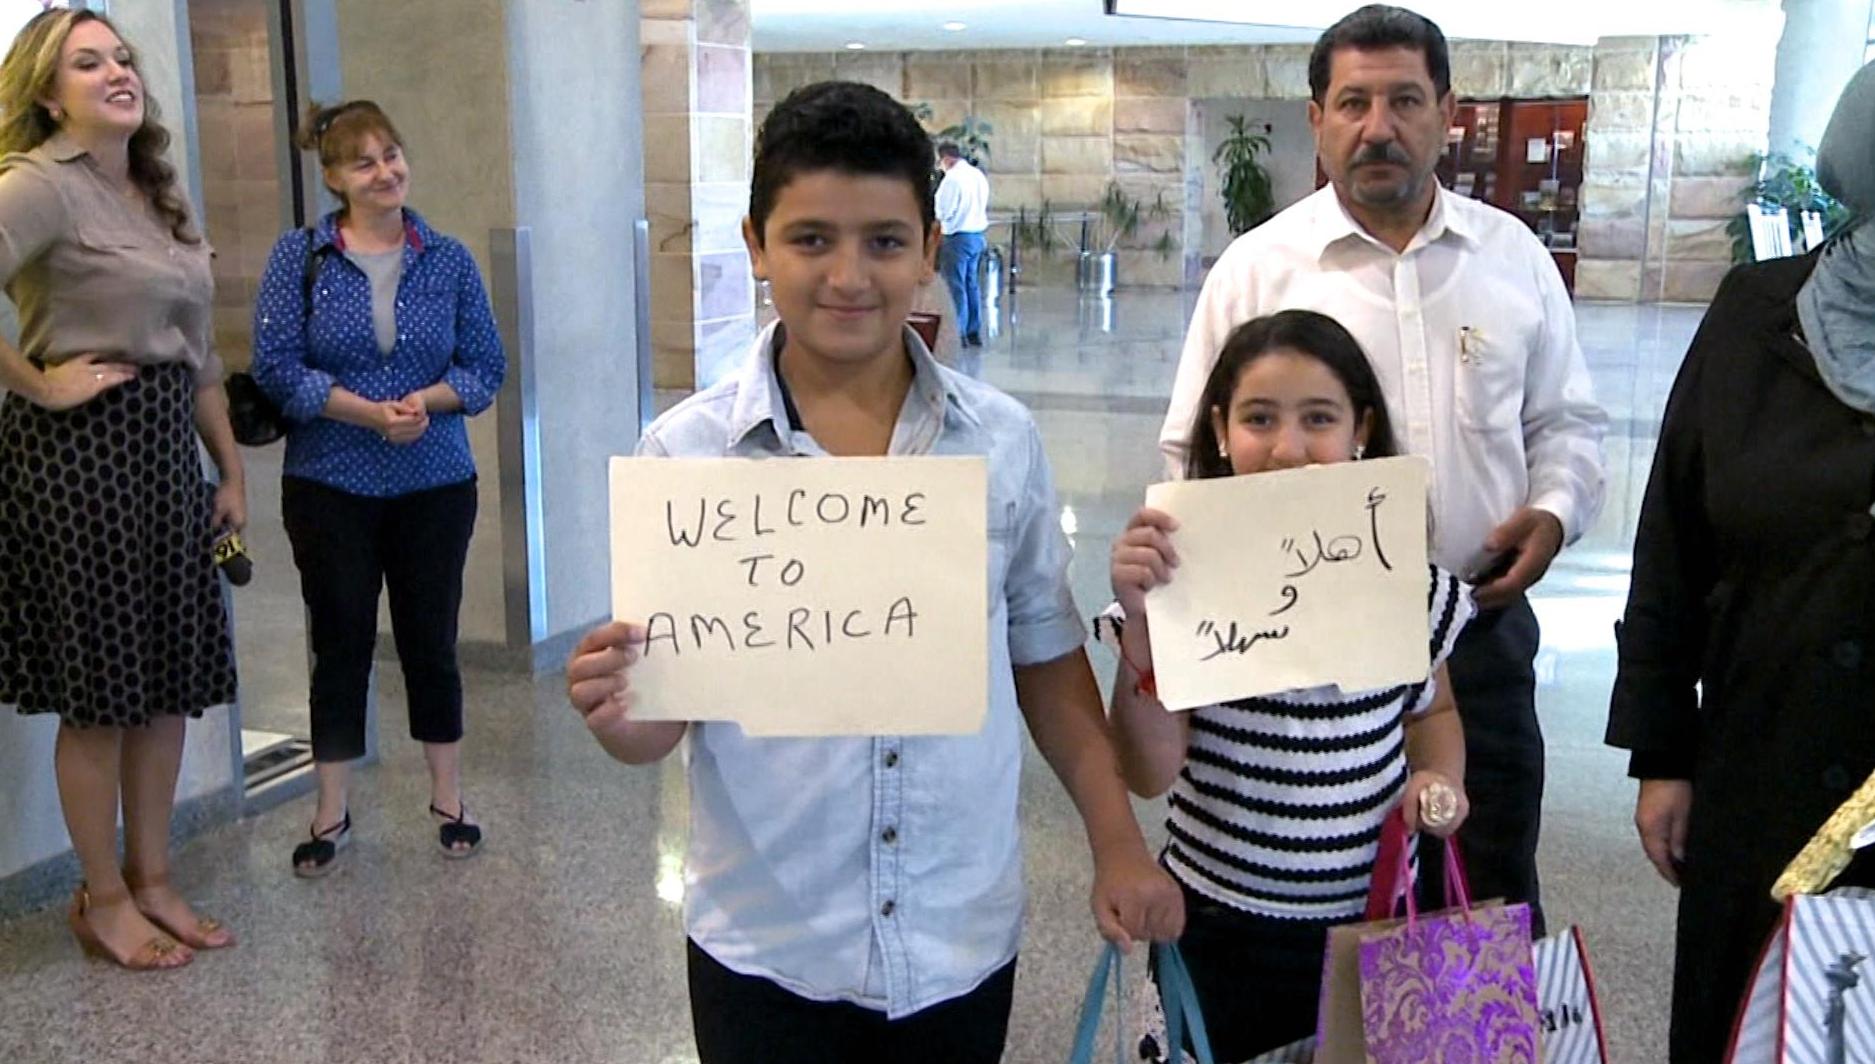 WELCOME
TO
AMERICA
أهلاً
و
سهلاً
91